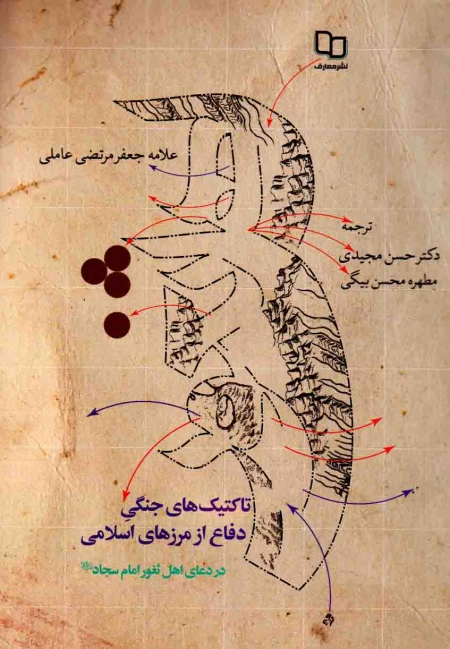 نشر معارف
علامه جعفر مرتضی عاملی
ترجمه
دکتر حسن مجیدی
مطهره محسن بیگی
تاکتیک‌های جنگیِ
دفاع از مرزهای اسلامی
در دعای اهل ثغور امام سجاد